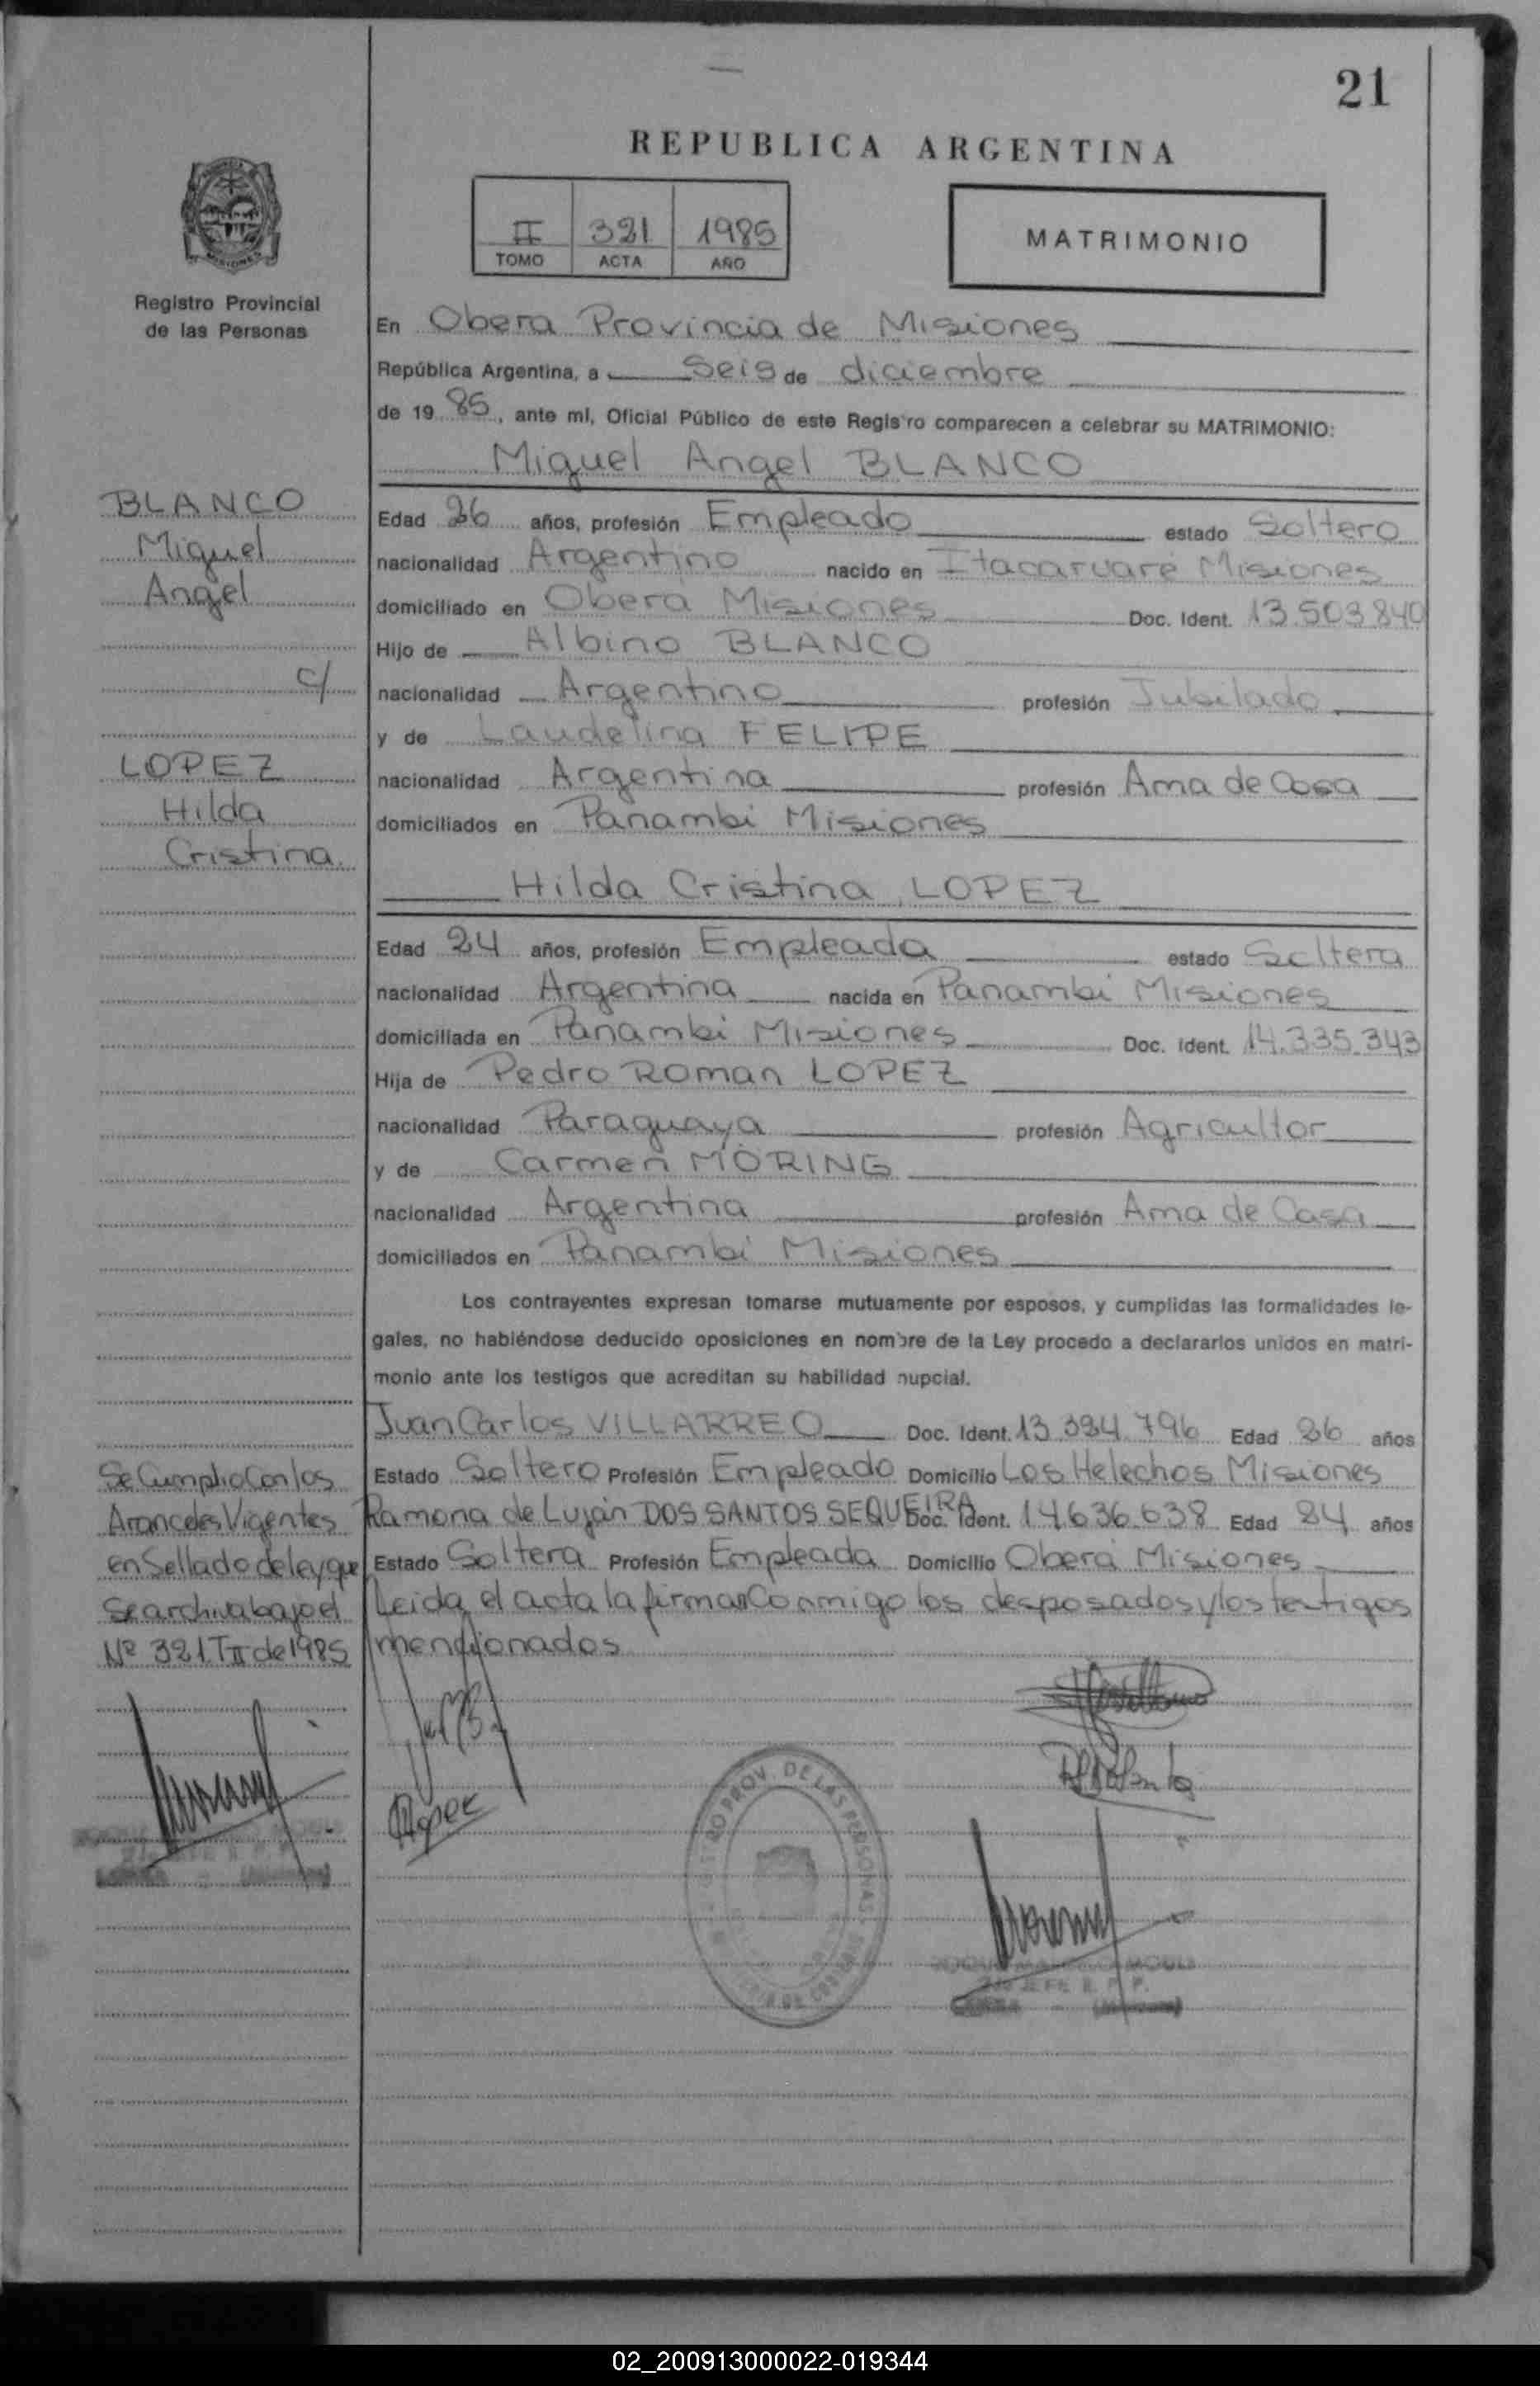 21
REPUBLICA ARGENTINA
II 321 1985
TOMO ACTA AÑO
MATRIMONIO
MISIONES
Registro Provincial
de las Personas
En Obera Provincia de Misiones
República Argentina, a Seis de diciembre
de 19 85, ante mí, Oficial Público de este Registro comparecen a celebrar su MATRIMONIO:
Miguel Angel BLANCO
BLANCO
Miguel
Angel
c/
LOPEZ
Hilda
Cristina
Edad 26 años, profesión Empleado estado Soltero
nacionalidad Argentino nacido en Itacaruaré Misiones
domiciliado en Oberá Misiones Doc. Ident. 13.503.840
Hijo de Albino BLANCO
nacionalidad Argentino profesión Jubilado
y de Laudelina FELIPE
nacionalidad Argentina profesión Ama de Casa
domiciliados en Panambi Misiones
Hilda Cristina LOPEZ
Edad 24 años, profesión Empleada estado Soltera
nacionalidad Argentina nacida en Panambi Misiones
domiciliada en Panambi Misiones Doc. Ident. 14.335.343
Hija de Pedro Roman LOPEZ
nacionalidad Paraguaya profesión Agricultor
y de Carmen MÖRING
nacionalidad Argentina profesión Ama de Casa
domiciliados en Panambi Misiones
Los contrayentes expresan tomarse mutuamente por esposos, y cumplidas las formalidades le-
gales, no habiéndose deducido oposiciones en nombre de la Ley procedo a declararlos unidos en matri-
monio ante los testigos que acreditan su habilidad nupcial.
Juan Carlos VILLARREO Doc. Ident. 13.324.796 Edad 26 años
Estado Soltero Profesión Empleado Domicilio Los Helechos Misiones
Ramona de Luján DOS SANTOS SEQUEIRA Doc. Ident. 14.636.638 Edad 24 años
Estado Soltera Profesión Empleada Domicilio Oberá Misiones
Leida el acta la firman Conmigo los desposados y los testigos
mencionados
Se Cumplio Con los
Aranceles Vigentes
en Sellado de ley que
Se archiva bajo el
Nº 321 T II de 1985
Lopez
PROV. DE LAS PERSONAS
JEFE R. P. P.
02_200913000022-019344